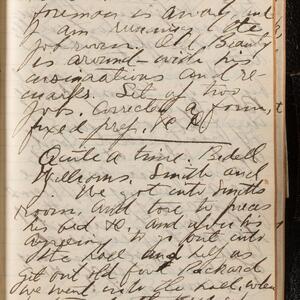 foreman is away and
I am running the
job room. Old Beaudy
is around with his
insinuations and re-
marks. Set up two
jobs, corrected a form,
fixed prep, &c &c
Quite a time. Bedell
Williams, Smith and
We got into Smiths
room, and tore to pieces
his bed &c, and after his
agreeing to go out into
the hall and help us
get out old Packard
we went into the hall, when